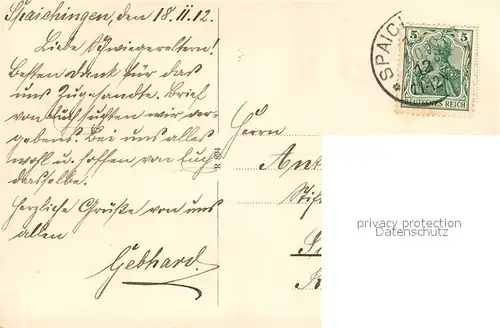 Spaichingen, den 18.II.12.
Liebe Schwiegereltern!
Besten Dank für das
uns Zugesandte. Brief
von Euch suchten wir ver-
gebens. Bei uns alles
wohl u. hoffen von Euch
dasselbe.
Herzliche Grüße von uns
allen
Gebhard.
Herrn
Ant
Stif
SPAICH
12
11-12
5 5
DEUTSCHES REICH
privacy protection
Datenschutz